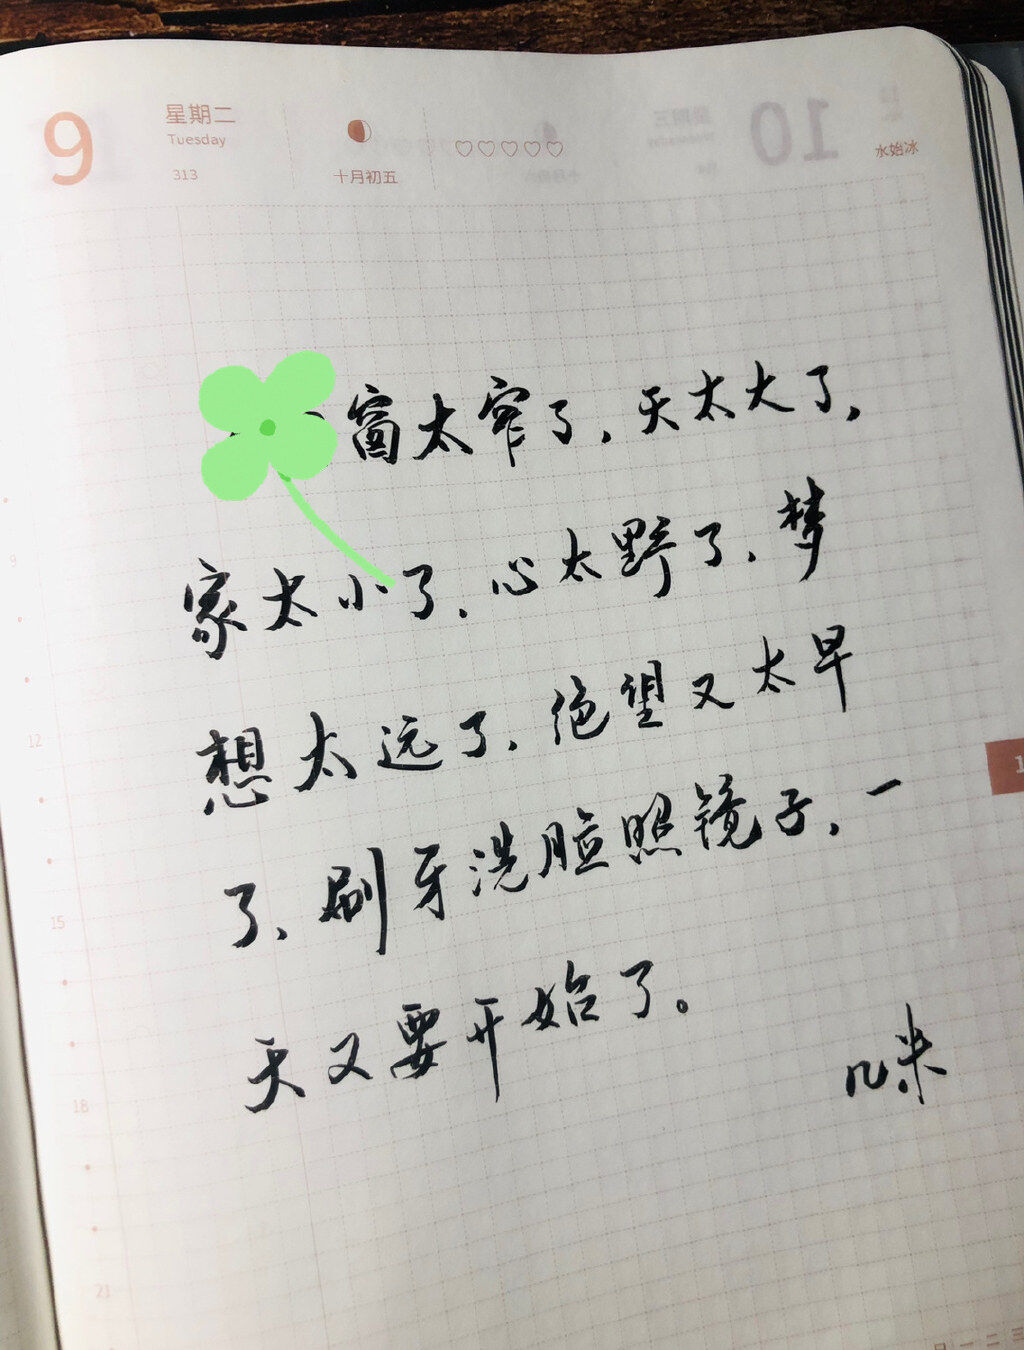 9 星期二 Tuesday 313 十月初五 水始冰
窗太窄了，天太大了，
家太小了，心太野了，梦
想太远了，绝望又太早
了，刷牙洗脸照镜子，一
天又要开始了。
几米
9
12
15
18
21